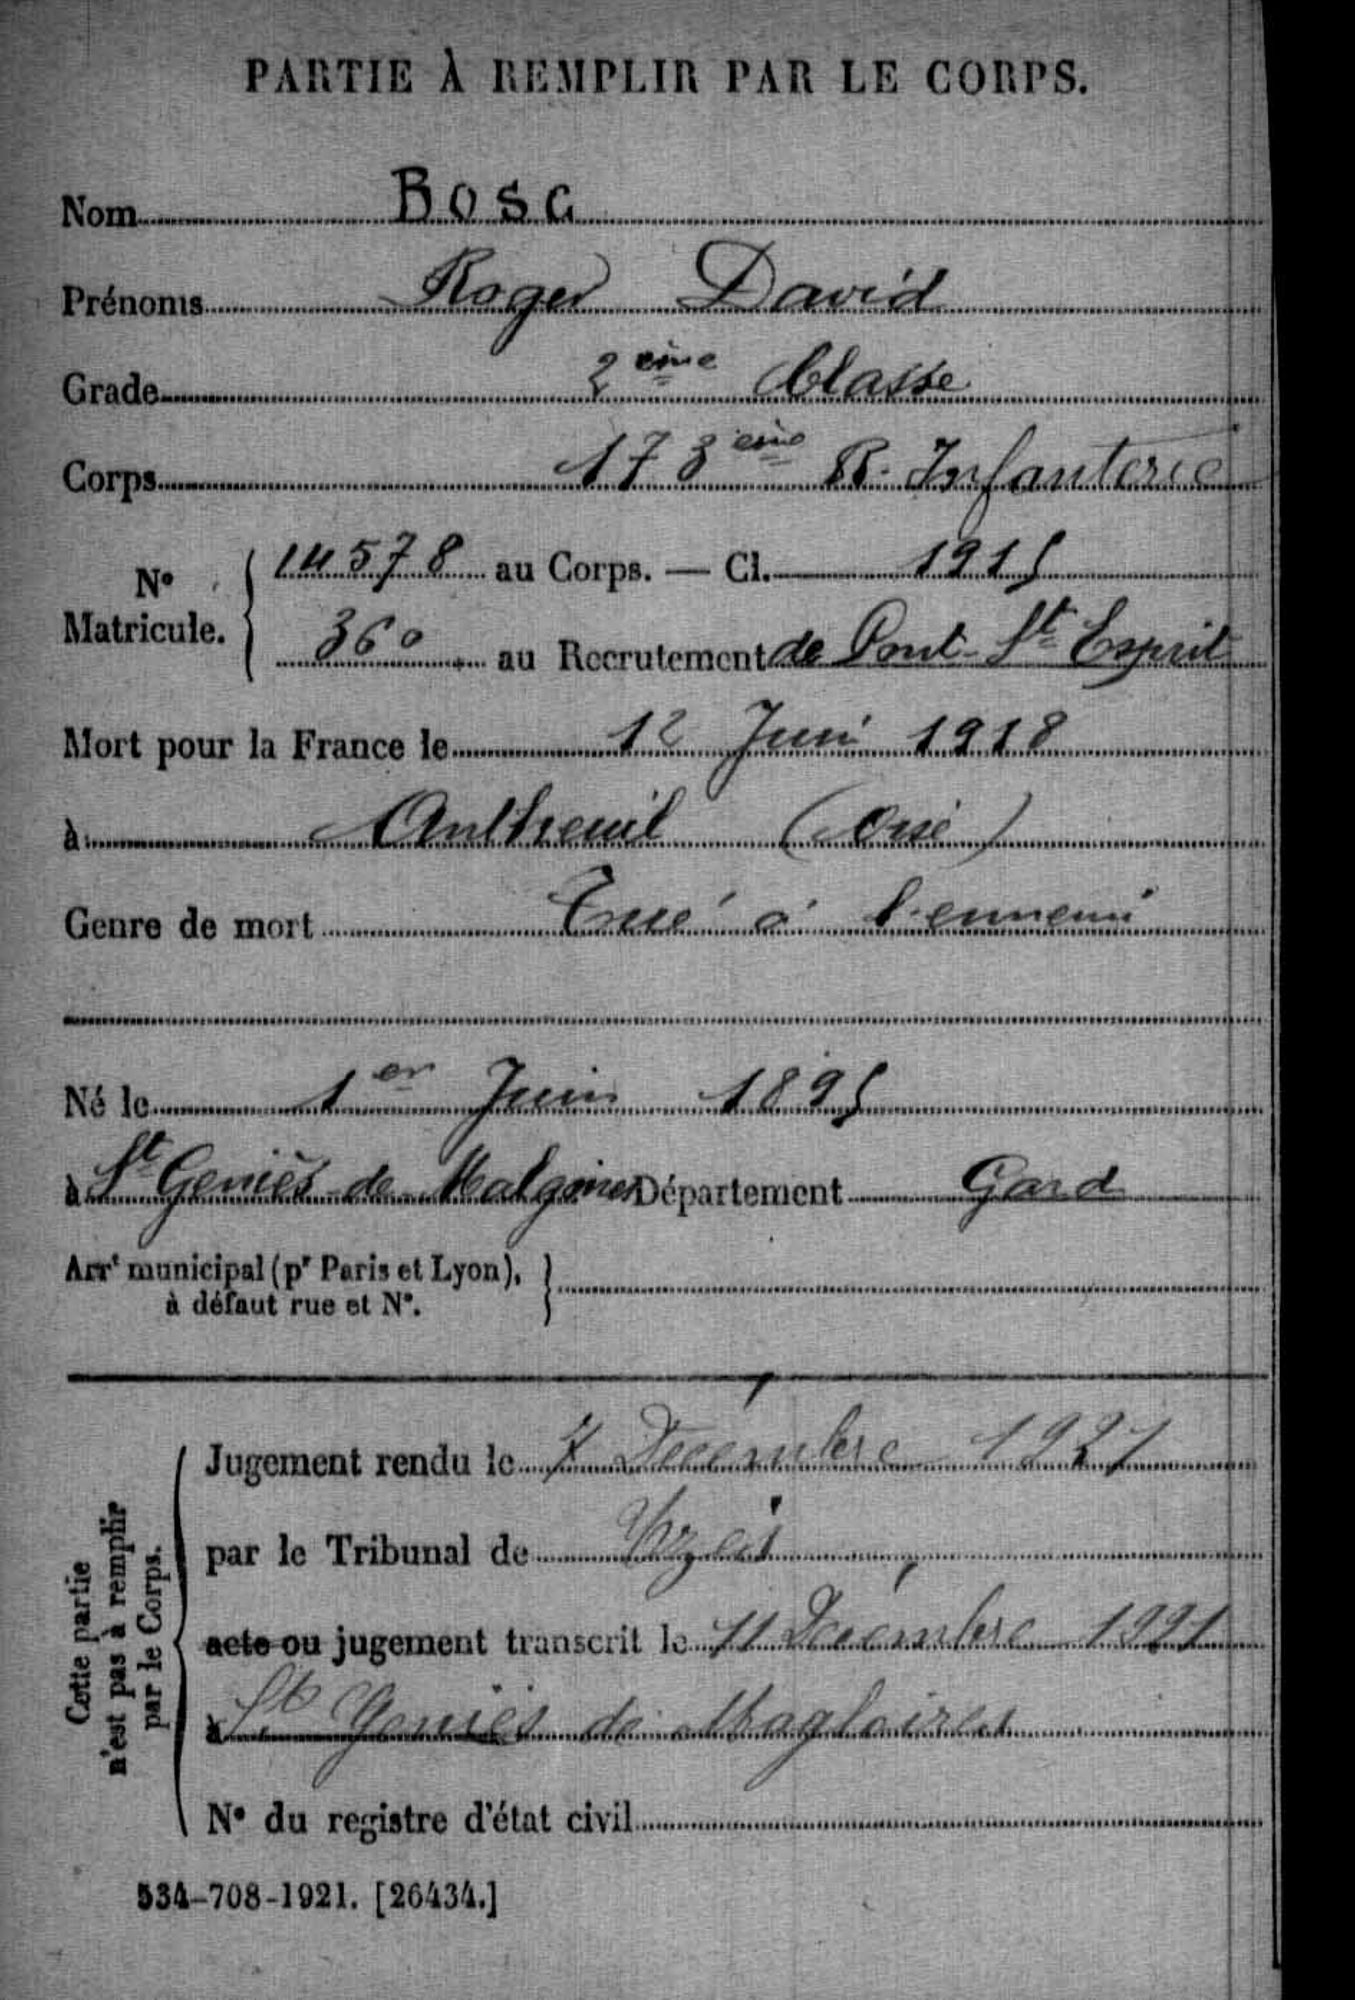 PARTIE À REMPLIR PAR LE CORPS.
Nom BOSC
Prénoms Roger David
Grade 2ème Classe
Corps 173ème R. Infanterie
N° Matricule. { 14578 au Corps. — Cl. 1915
360 au Recrutement de Pont St Esprit
Mort pour la France le 12 Juin 1918
à Antheuil (Oise)
Genre de mort Tué à l'ennemi
Né le 1er Juin 1895
à St Geniès de Malgoires Département Gard
Arrt municipal (pr Paris et Lyon), à défaut rue et N°.
Cette partie n'est pas à remplir par le Corps.
Jugement rendu le 7 Décembre 1921
par le Tribunal de Uzès
acte ou jugement transcrit le 11 Décembre 1921
à St Geniès de Magloires
N° du registre d'état civil
534-708-1921. [26434.]